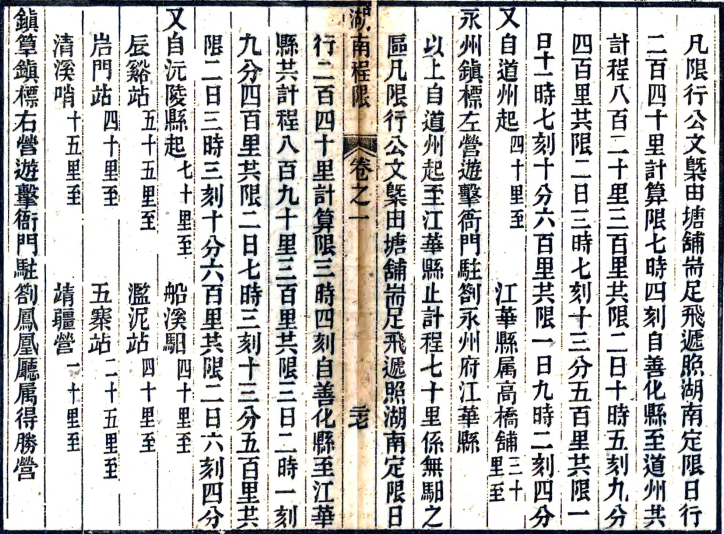 凡限行公文槩由塘舖耑足飛遞照湖南定限日行
二百四十里計算限七時四刻自善化縣至道州共
計程八百二十里三百里共限二日十時五刻九分
四百里共限二日三時七刻十三分五百里共限一
日十一時七刻十分六百里共限一日九時二刻四分
又自道州起四十里至　江華縣属高橋舖三十里至
永州鎮標左營遊擊衙門駐劄永州府江華縣
以上自道州起至江華縣止計程七十里係無馹之
區凡限行公文槩由塘舖耑足飛遞照湖南定限日
湖南程限　卷之一　三七
行二百四十里計算限三時四刻自善化縣至江華
縣共計程八百九十里三百里共限三日二時一刻
九分四百里共限二日七時三刻十三分五百里共
限二日三時三刻十分六百里共限二日六刻四分
又自沅陵縣起七十里至　船溪馹四十里至
辰谿站五十五里至　濫泥站四十里至
岩門站四十里至　五寨站二十五里至
清溪哨十五里至　靖疆營一十里至
鎮筸鎮標右營遊擊衙門駐劄鳳凰廳属得勝營